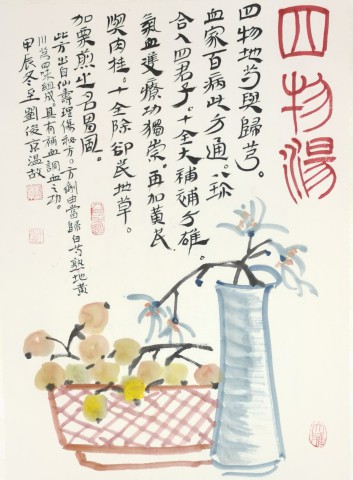 四物湯
四物地芍與歸芎。
血家百病此方通。八珍
合入四君子。十全大補補方雄。
氣血雙療功獨崇。再加黃芪
與肉桂。十全除卻芪地草。
加粟煎之名胃風。
此方出自仙壽理傷秘方。方劑由當歸白芍熟地黃
川芎四味組成具有補血調血之功。
甲辰冬至劉俊京溫故